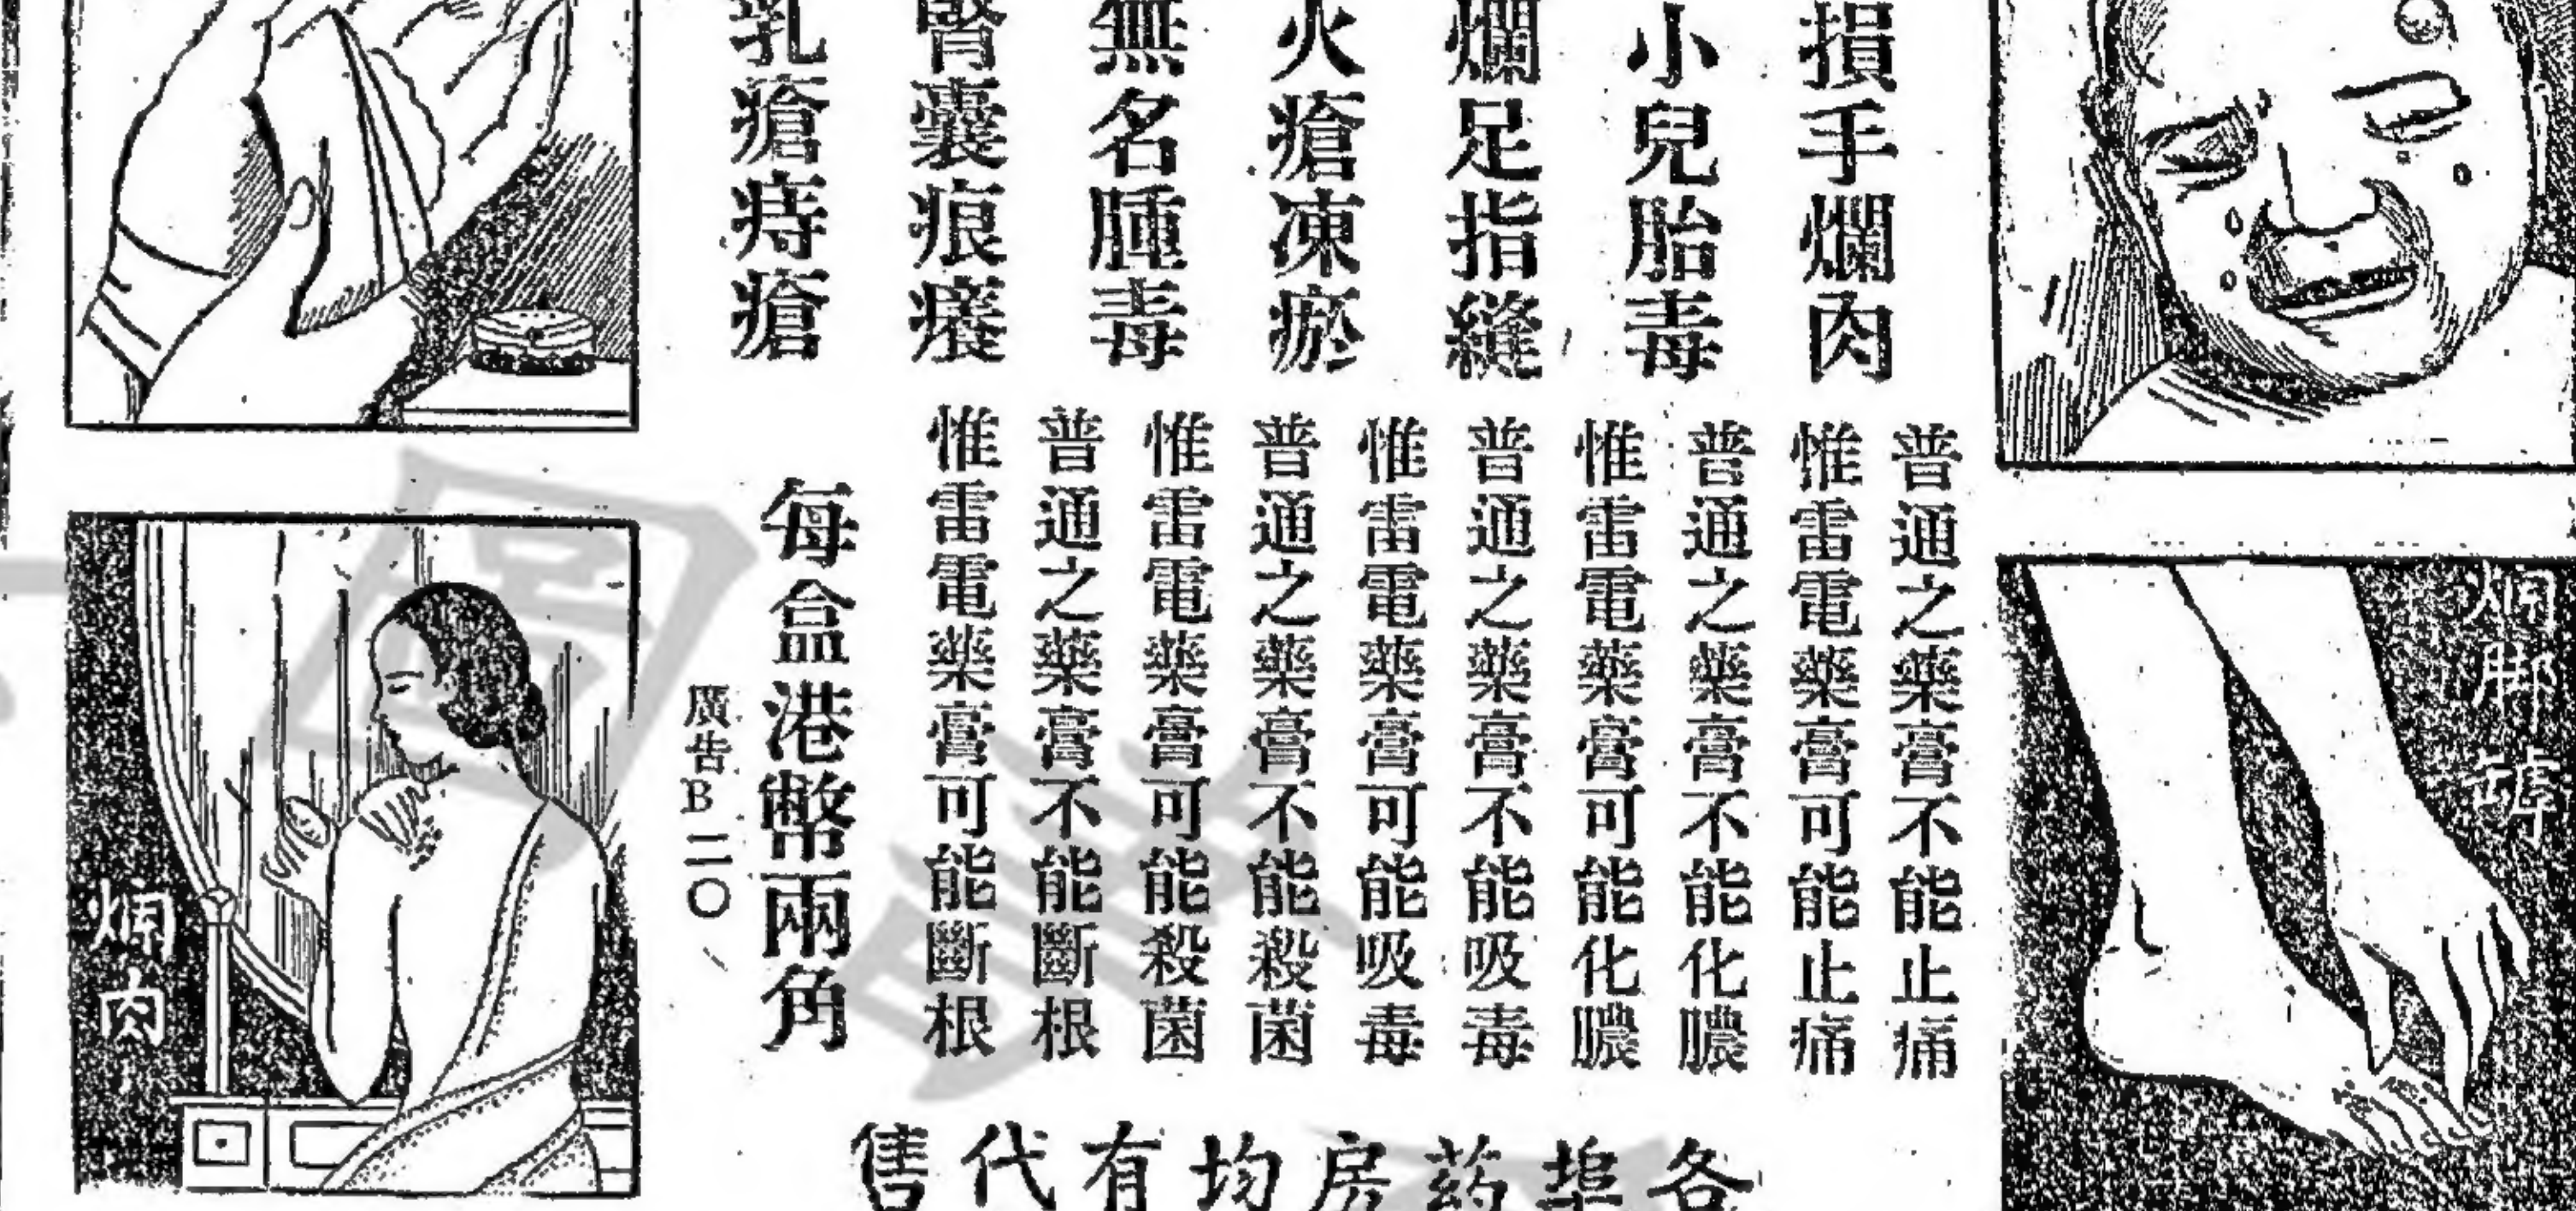 損手爛肉
小兒胎毒
爛足指縫
火瘡凍瘀
無名腫毒
腎囊痕癢
乳瘡痔瘡
普通之藥膏不能止痛
惟雷電藥膏可能止痛
普通之藥膏不能化膿
惟雷電藥膏可能化膿
普通之藥膏不能吸毒
惟雷電藥膏可能吸毒
普通之藥膏不能殺菌
惟雷電藥膏可能殺菌
普通之藥膏不能斷根
惟雷電藥膏可能斷根
每盒港幣兩角
廣告B二〇
各埠葯房均有代售
爛脚
爛肉